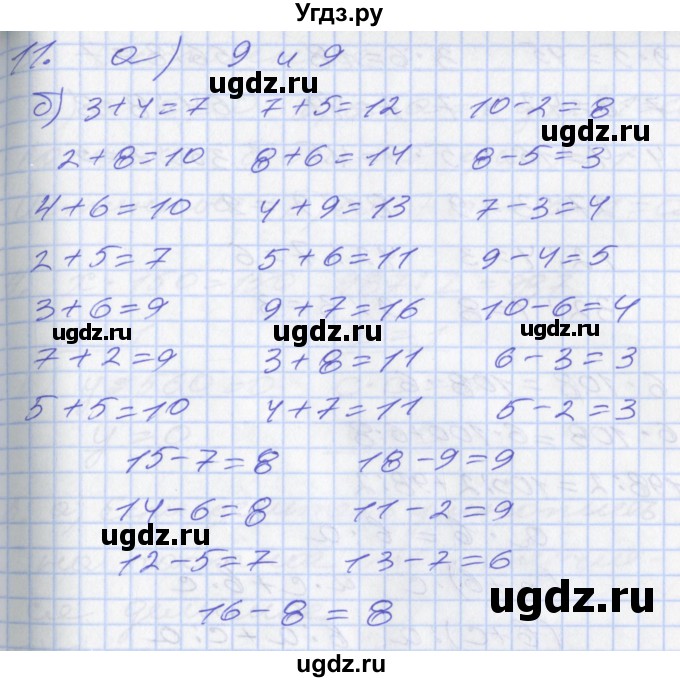 Угдз.ру
11. а) 9 и 9
ugdz.ru
б) 3+4=7 7+5=12 10-2=8
ugdz.ru
2+8=10 8+6=14 8-5=3
4+6=10 4+9=13 7-3=4
ugdz.ru
2+5=7 5+6=11 9-4=5
3+6=9 9+7=16 10-6=4
ugdz.ru ugdz.ru ugdz.ru
7+2=9 3+8=11 6-3=3
5+5=10 4+7=11 5-2=3
15-7=8 18-9=9
ugdz.ru
14-6=8 11-2=9
ugdz.ru
12-5=7 13-7=6
ugdz.ru
16-8=8
ugdz.ru
ugdz.ru